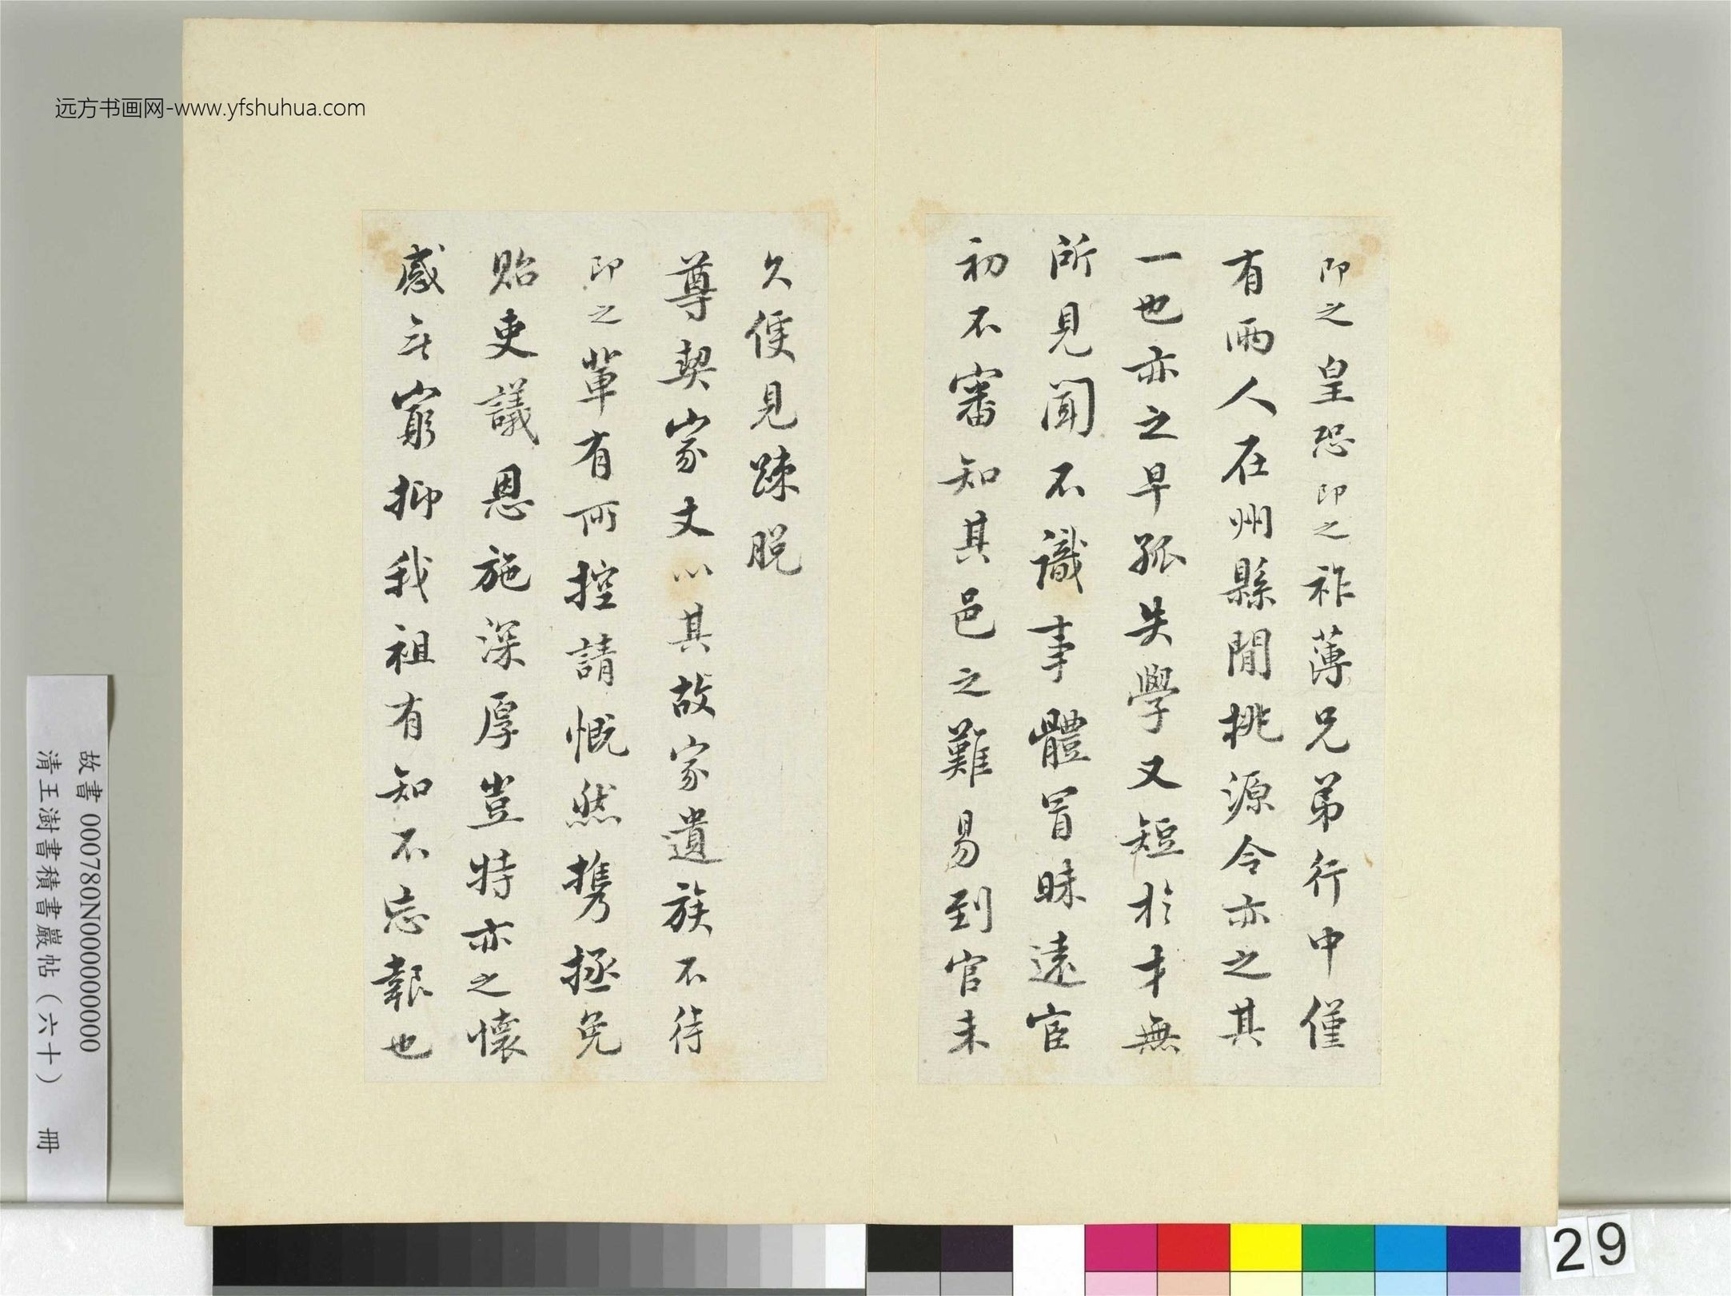 远方书画网-www.yfshuhua.com
即之皇恐即之祚薄兄弟行中僅
有兩人在州縣間桃源令亦之其
一也亦之早孤失學又短於才無
所見聞不識事體冒昧遠宦
初不審知其邑之難易到官未
久便見踈脫
尊契家丈以其故家遺族不待
即之輩有所控請慨然携拯免
貽吏議恩施深厚豈特亦之懷
感無窮抑我祖有知不忘報也
故書 000780N000000000
清王澍書積書巖帖(六十) 冊
29